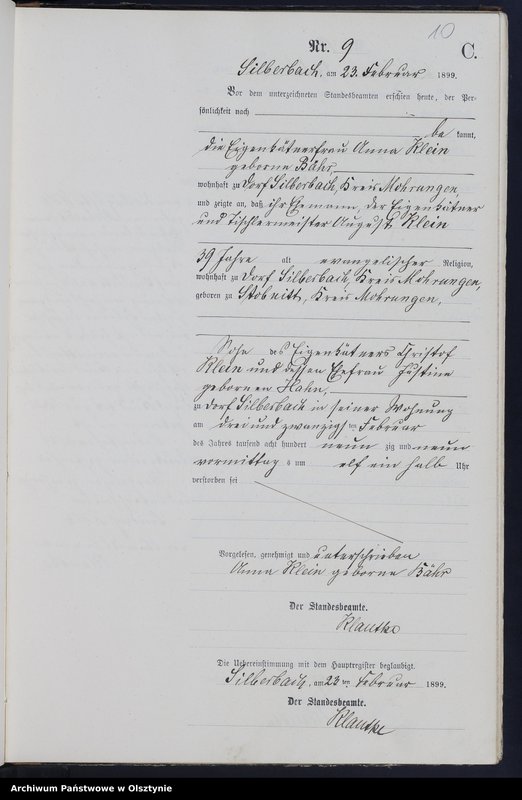 10
Nr. 9
C.
Silberbach, am 23. Februar 1899.
Vor dem unterzeichneten Standesbeamten erschien heute, der Per-
sönlichkeit nach
be kannt,
die Eigenkätnerfrau Anna Klein
geborne Bähr,
wohnhaft zu Dorf Silberbach, Kreis Mohrungen,
und zeigte an, daß ihr Ehemann, der Eigenkätner
und Tischlermeister August Klein
39 Jahre alt evangelischer Religion,
wohnhaft zu Dorf Silberbach, Kreis Mohrungen,
geboren zu Stobnitt, Kreis Mohrungen,
Sohn des Eigenkätners Christof
Klein und dessen Ehefrau Justine
gebornen Hahn,
zu Dorf Silberbach in seiner Wohnung
am drei und zwanzigsten Februar
des Jahres tausend acht hundert neun zig und neun
vormittag s um elf ein halb Uhr
verstorben sei
Vorgelesen, genehmigt und unterschrieben
Anna Klein geborne Bähr
Der Standesbeamte.
Klautke
Die Uebereinstimmung mit dem Hauptregister beglaubigt.
Silberbach, am 23 ten Februar 1899.
Der Standesbeamte.
Klautke
Archiwum Państwowe w Olsztynie